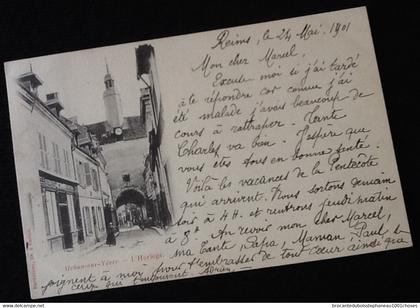 Reims, le 24 Mai, 1901
Mon cher Marcel,
Excuse moi si j'ai tardé
à te répondre car comme j'ai
été malade j'avais beaucoup de
cours à rattraper. Tante
Charles va bien. J'espère que
vous êtes tous en bonne santé.
Voilà les vacances de la Pentecôte
qui arrivent. Nous sortons demain
soir à 4H. et rentrons jeudi matin
à 8h. Au revoir mon cher Marcel,
ma Tante, Papa, Maman, Paul se
joignent à moi pour t'embrasser de tout cœur ainsi que
ceux qui t'entourent. Adrien.
Mehun-sur-Yèvre — L'Horloge